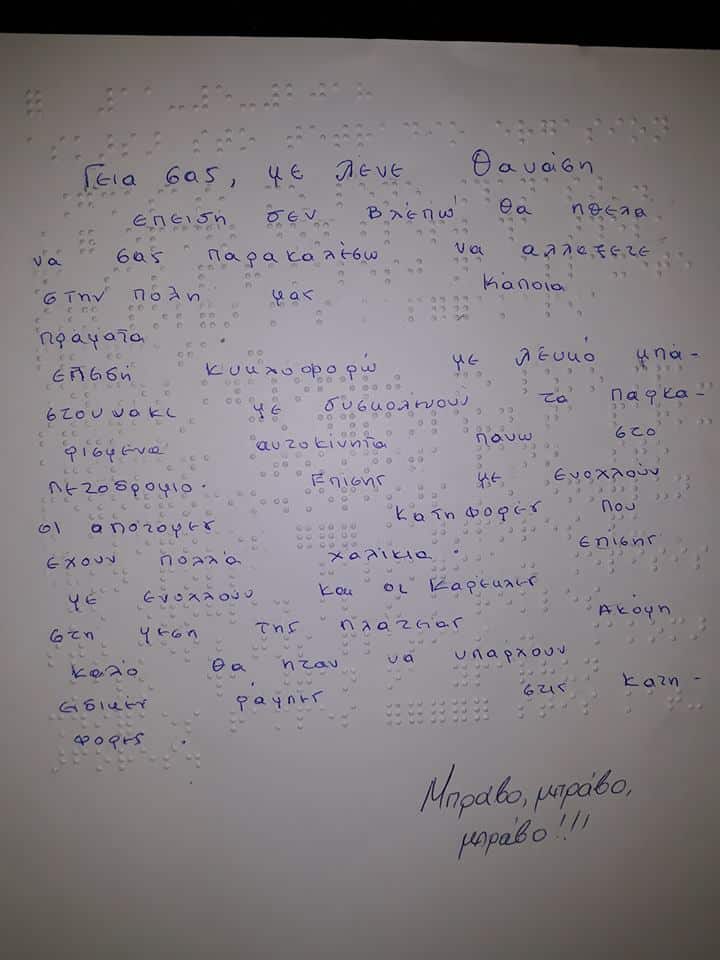 Γεια σας, με λένε Θανάση
επειδη δεν Βλέπω θα ηθελα
να σας παρακαλέσω να αλλαξετε
στην πολη μας κάποια
πράματα
επιδή κυκλοφορφώ με λευκό μπα-
στουνακι με δυσκολευουν τα παρκα-
ρισμενα αυτοκίνητα πανω στο
πεζοδρομιο. Επισης με ενοχλούν
οι αποτομες κατηφορές που
εχουν πολλά χαλίκια. επίσης
με ενοχλουν και οι καρεκλες
στη μεση της πλατειας Ακόμη
καλό θα ηταν να υπάρχουν
ειδικες ράμπες στις κατη-
φορες.
Μπράβο, μπράβο,
μπράβο!!!